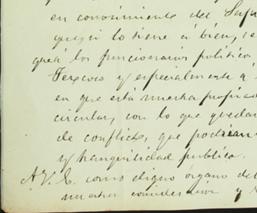 en conocimiento del Sup
quegu lo tiene á bien, se
quen los funcionarios politicos
y especialmente á
en que está nuestra propied
circular, con lo que quedan
de conflicto, que podrian
y tranquilidad publica.
A V. E. como digno órgano del
nuestra consideracion y